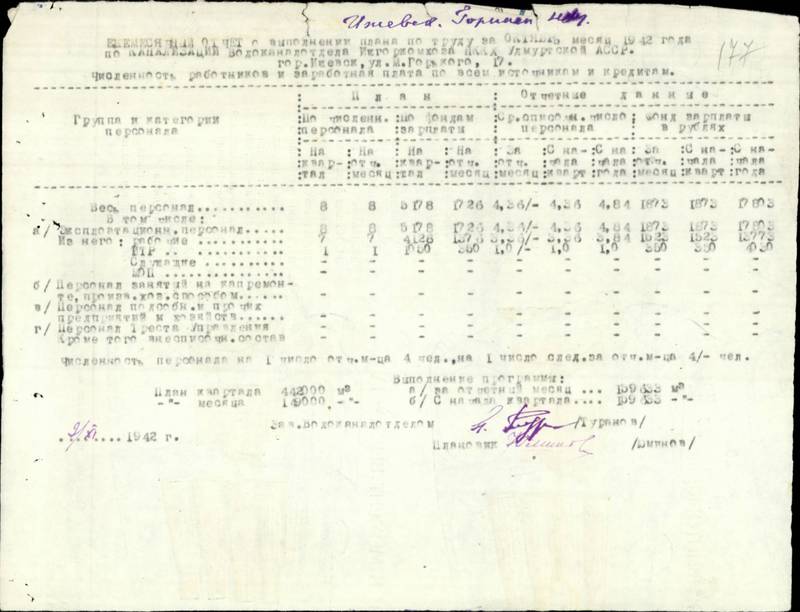 Ижевск.
177
ЕЖЕМЕСЯЧНЫЙ ОТЧЕТ о выполнении плана по труду за ОКТЯБРЬ месяц 1942 года
по КАНАЛИЗАЦИИ Водоканалотдела Ижгоркомхоза НККХ Удмуртской АССР.
гор.Ижевск, ул.М.Горького, 17.
Численность работников и заработная плата по всем источникам и кредитам.
Группа и категории персонала : П л а н : Отчетные данные
:По числен. персонала :По фондам зарплаты :Ср.списочн.число персонала : Фонд зарплаты в рублях
:На квар- тал :На отч. месяц :На квар- тал :На отч. месяц :За отч. месяц :С на- чала кварт :С на- чала года :За отч. месяц :С на- чала кварт :С на- чала года
Весь персонал..... 8 8 5178 1726 4,36/- 4,36 4,84 1873 1873 17803
В том числе:
а/ Эксплоатационн.персонал..... 8 8 5178 1726 4,36/- 4,36 4,84 1873 1873 17803
Из него: рабочие ........... 7 7 4128 1376 3,36/- 3,36 3,84 1523 1523 13773
ИТР .. ........... 1 1 1050 350 1,0/- 1,0 1,0 350 350 4030
Служащие ........... - - - - - - - - - -
МОП ........... - - - - - - - - - -
б/ Персонал занятий на капремон-
те, произв.хоз.способом...... - - - - - - - - - -
в/ Персонал подсобн.и прочих
предприятий и хозяйств...... - - - - - - - - - -
г/ Персонал Треста Управления - - - - - - - - - -
Кроме того внесписочн.состав - - - - - - - - - -
Численность персонала на 1 число отч.м-ца 4 чел.,на 1 число след.за отч.м-ца 4/- чел.
Выполнение программы:
План квартала 442000 м³ а/ за отчетный месяц ... 159833 м³
-"- месяца 149000 -"- б/ С начала квартала.... 159833 -"-
Зав.Водоканалотделом /Туранов/
.... 1942 г. Плановик /Эминов/